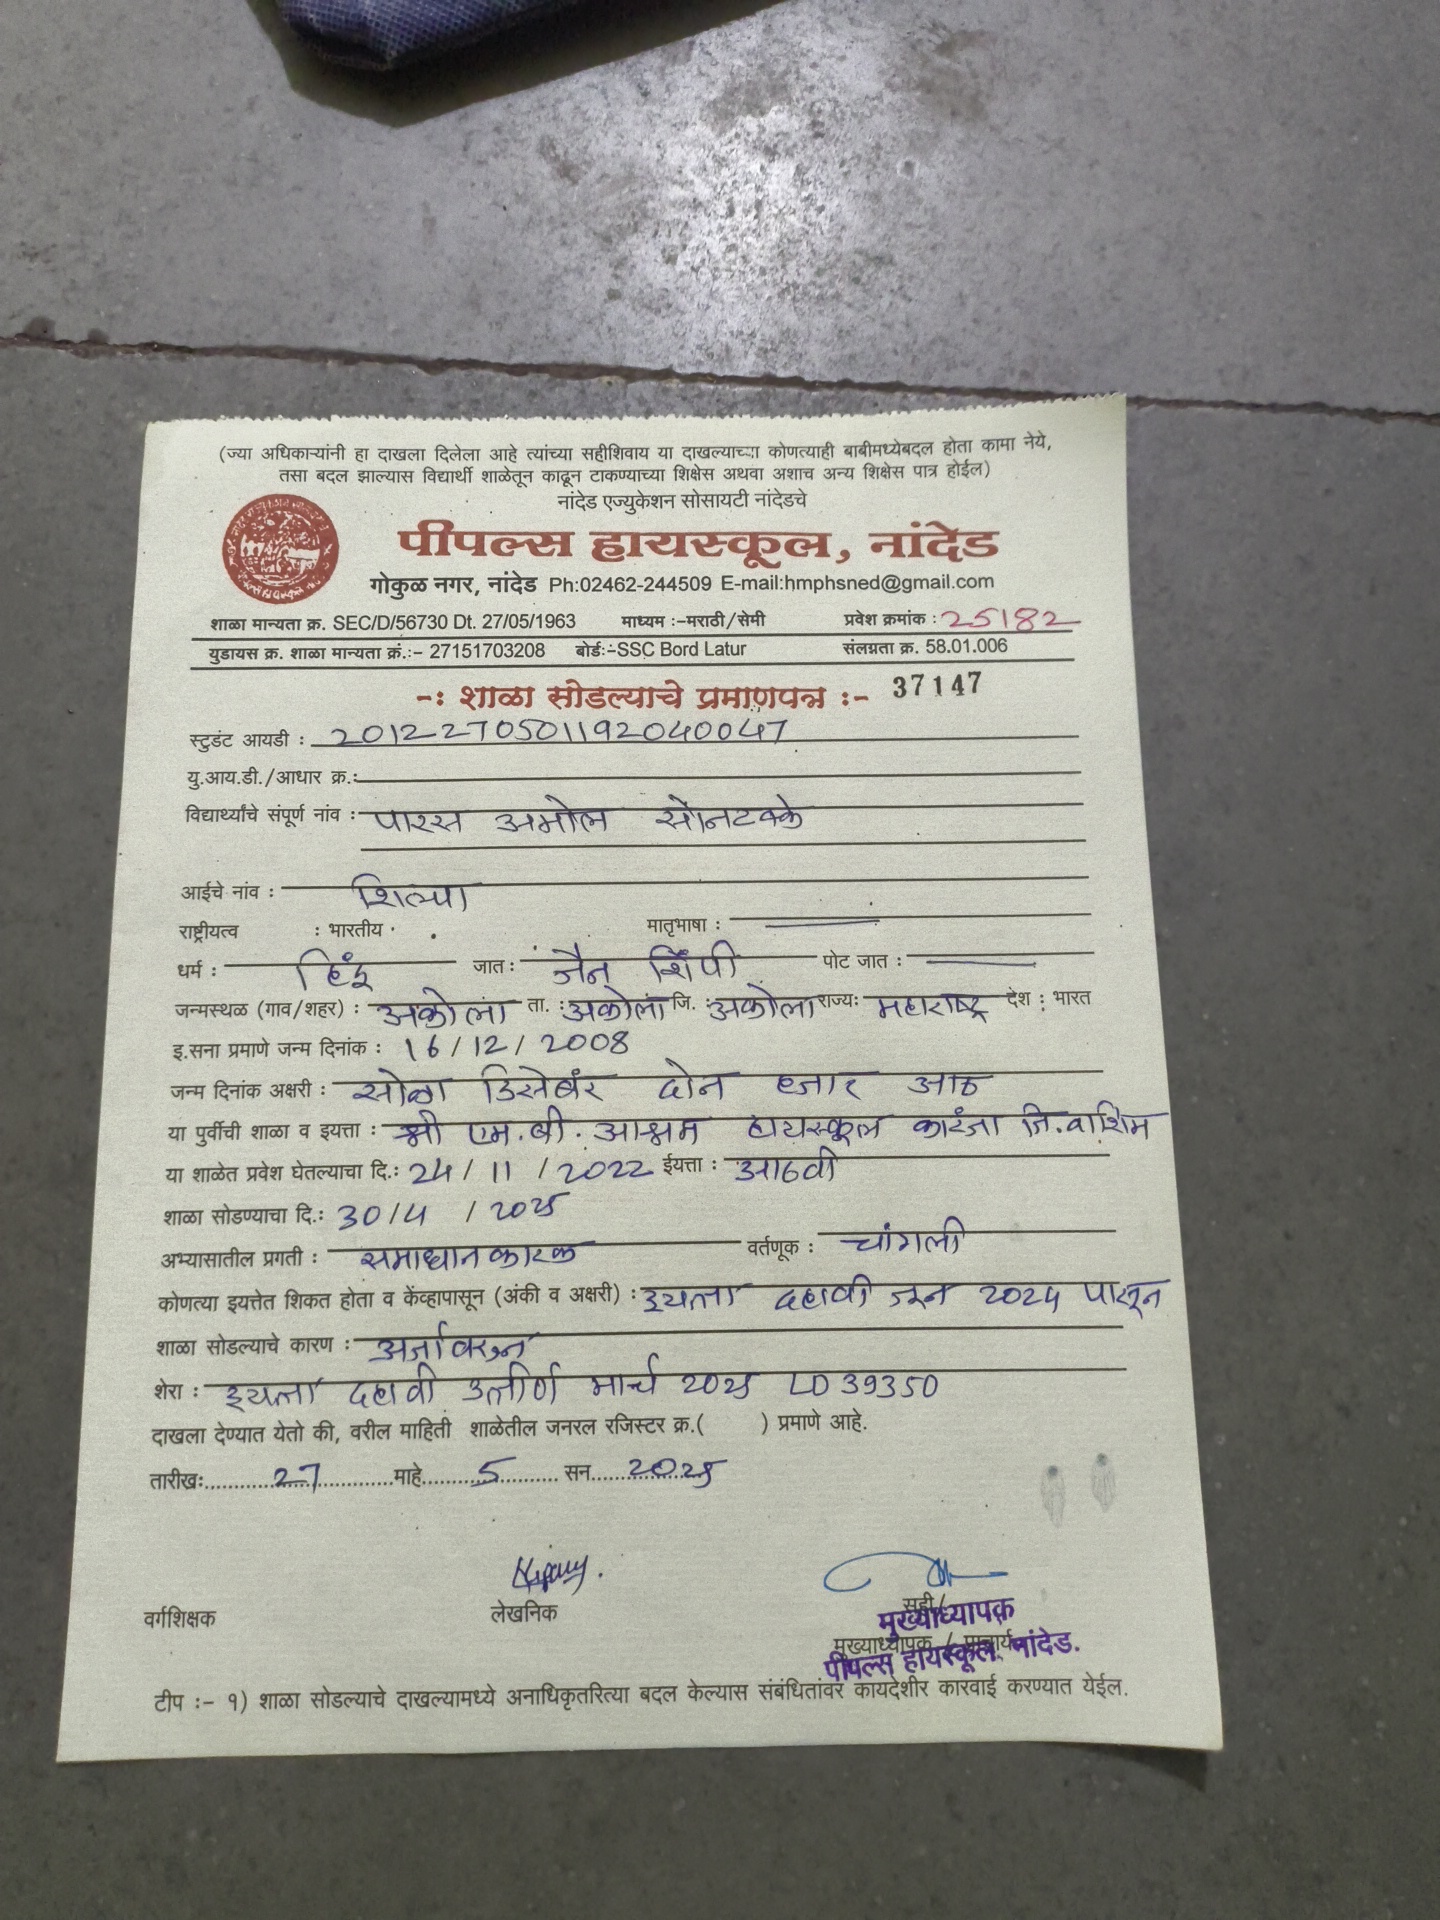 (ज्या अधिकाऱ्यांनी हा दाखला दिलेला आहे त्यांच्या सहीशिवाय या दाखल्याच्या कोणत्याही बाबीमध्येबदल होता कामा नेये,
तसा बदल झाल्यास विद्यार्थी शाळेतून काढून टाकण्याच्या शिक्षेस अथवा अशाच अन्य शिक्षेस पात्र होईल)
नांदेड एज्युकेशन सोसायटी नांदेडचे
पीपल्स हायस्कूल, नांदेड
गोकुळ नगर, नांदेड Ph:02462-244509 E-mail:hmphsned@gmail.com
शाळा मान्यता क्र. SEC/D/56730 Dt. 27/05/1963 माध्यम :-मराठी/सेमी प्रवेश क्रमांक : 25182
युडायस क्र. शाळा मान्यता क्रं.:- 27151703208 बोर्ड:-SSC Bord Latur संलग्नता क्र. 58.01.006
-: शाळा सोडल्याचे प्रमाणपत्र :- 37147
स्टुडंट आयडी : 2012270501192040047
यु.आय.डी./आधार क्र.:
विद्यार्थ्यांचे संपूर्ण नांव : पारस अमोल सोनटक्के
आईचे नांव : शिल्पा
राष्ट्रीयत्व : भारतीय मातृभाषा :
धर्म : हिंदू जात : जैन शिंपी पोट जात :
जन्मस्थळ (गाव/शहर) : अकोला ता. : अकोला जि. : अकोला राज्य: महाराष्ट्र देश : भारत
इ.सना प्रमाणे जन्म दिनांक : 16/12/2008
जन्म दिनांक अक्षरी : सोळा डिसेंबर दोन हजार आठ
या पुर्वीची शाळा व इयत्ता : श्री एम.बी. आश्रम हायस्कूल कारंजा जि.वाशिम
या शाळेत प्रवेश घेतल्याचा दि.: 24/11/2022 ईयत्ता : आठवी
शाळा सोडण्याचा दि.: 30/4/2025
अभ्यासातील प्रगती : समाधानकारक वर्तणूक : चांगली
कोणत्या इयत्तेत शिकत होता व केंव्हापासून (अंकी व अक्षरी) : इयत्ता दहावी जून 2024 पासून
शाळा सोडल्याचे कारण : अर्जावरुन
शेरा : इयत्ता दहावी उत्तीर्ण मार्च 2025 LD 39350
दाखला देण्यात येतो की, वरील माहिती शाळेतील जनरल रजिस्टर क्र.( ) प्रमाणे आहे.
तारीख:.......27.......माहे.......5....... सन.......2025
वर्गशिक्षक लेखनिक सही/
मुख्याध्यापक
मुख्याध्यापक / प्राचार्य
पीपल्स हायस्कूल, नांदेड.
टीप :- १) शाळा सोडल्याचे दाखल्यामध्ये अनाधिकृतरित्या बदल केल्यास संबंधितांवर कायदेशीर कारवाई करण्यात येईल.